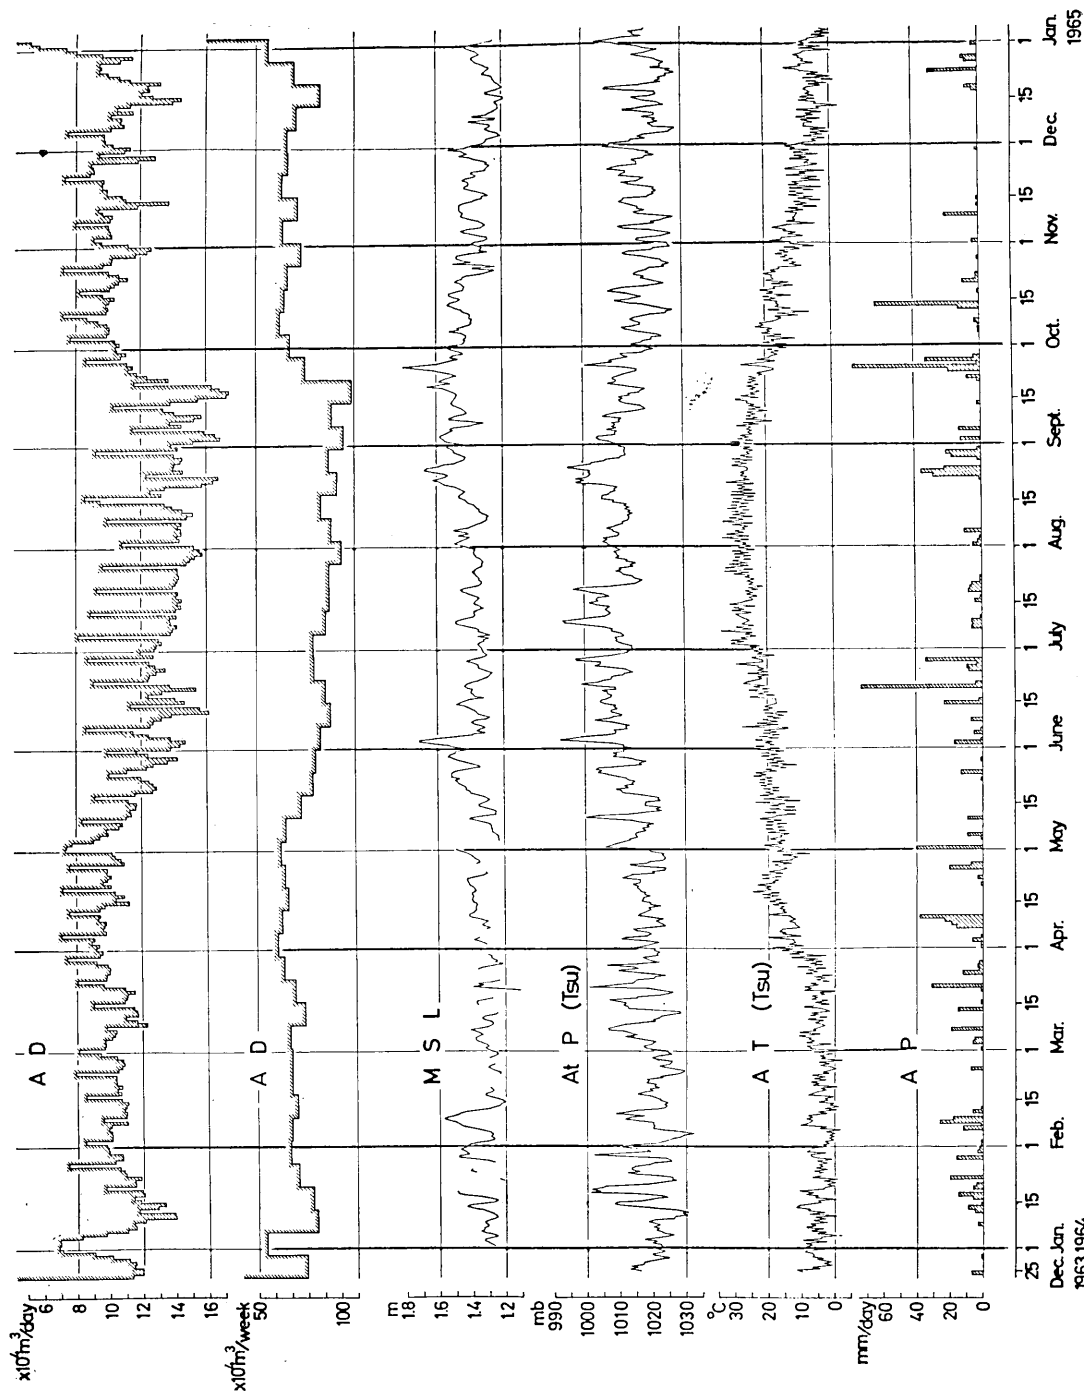 x10⁴m³/day
6
8
10
12
14
16
A D
x10⁴m³/week
50
100
A D
m
1.8
1.6
1.4
1.2
M S L
mb
990
1000
1010
1020
1030
At P (Tsu)
°C
30
20
10
0
A T (Tsu)
mm/day
60
40
20
0
A P
25 1 15 1 15 1 15 1 15 1 15 1 15 1 15 1 15 1 15 1 15 1 15 1 15 1
Dec. Jan. Feb. Mar. Apr. May June July Aug. Sept. Oct. Nov. Dec. Jan.
1963 1964 1965